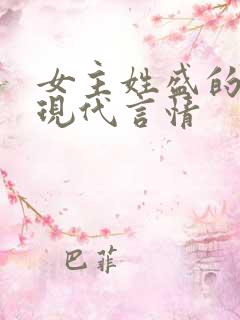 女主姓盛的
現代言情
巴菲